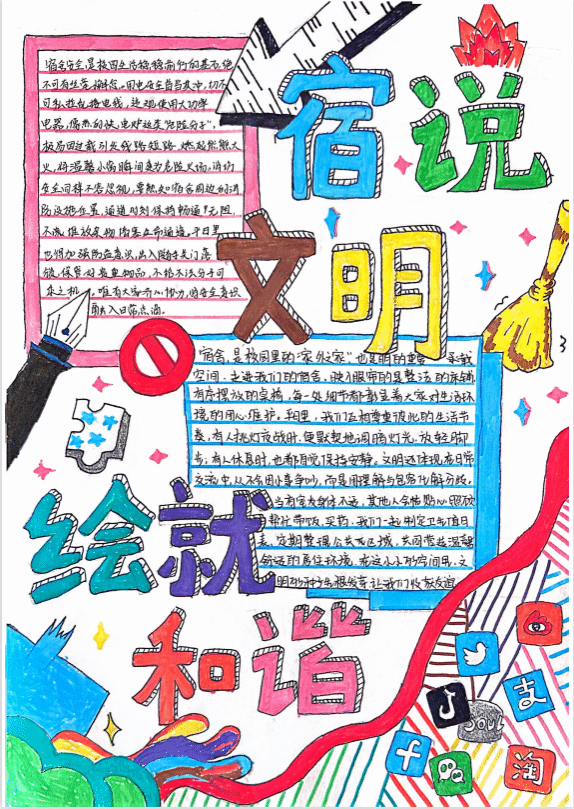 宿说
文明
绘就
和谐
宿舍安全,是校园生活稳稳前行的基石,绝
不可有丝毫懈怠。用电安全首当其冲,切不
可私拉乱接电线,违规使用大功率
电器,像热的快、电炉这类"危险分子",
极易因过载引发线路短路,燃起熊熊大
火,将温馨小窝瞬间变为危险火场。消防
安全同样不容忽视,要熟知宿舍周边的消
防设施位置,通道时刻保持畅通无阻,
不随意放杂物堵塞生命通道。平日里
也得加强防盗意识,出入随手关门
锁,保管好贵重物品,不给不法分子可
乘之机。唯有大家齐心协力,将安全意识
融入日常点滴
"宿舍,是校园里的"家外之家"也是明的
空间。走进我们的宿舍,映入眼帘的是整洁的床铺
有序摆放的桌椅,每一处细节都彰显着大家对生活环
境的用心维护。利里,我们互相尊重彼此的生活节
奏,有人挑灯夜战时,便默契地调暗灯光,放轻脚
步;有人休息时,也都自觉保持安静。文明还体现在日常
交流中,从不会因小事争吵,而是用理解与包容化解分歧。
当有室友身体不适,其他人会悄贴心照顾
帮忙带饭、买药。我们一起制定卫生值日
表,定期整理公共区域,共同营造温馨
舒适的居住环境。在这小小的空间里,文
明的种子让我们收获友谊
SOUL
支
淘
f